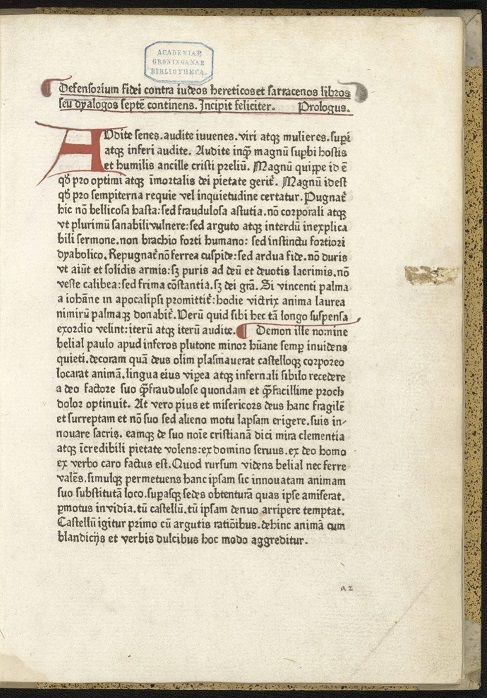 ACADEMIAE
GRONINGANAE
BIBLIOTHECA.
Defensorium fidei contra iudeos hereticos et sarracenos libros
seu dyalogos septē continens. Incipit feliciter. Prologus.
Audite senes. audite iuuenes. viri atqꝫ mulieres. supi
atqꝫ inferi audite. Audite inqꝫ magnū supbi hostis
et humilis ancille cristi preliū. Magnū quippe id ē
qꝺ pro optimi atqꝫ imortalis dei pietate gerit̄. Magnū id est
qꝺ pro sempiterna requie vel inquietudine certatur. Pugnat̄
hic nō bellicosa hasta: sed fraudulosa astutia. nō corporali atqꝫ
vt plurimū sanabili vulnere: sed arguto atqꝫ interdū inexplica
bili sermone. non brachio forti humano: sed instinctu fortiori
dyabolico. Repugnat̄ nō ferrea cuspide: sed ardua fide. nō duris
vt aiūt et solidis armis: sꝫ puris ad deū et deuotis lacrimis. nō
veste calibea: sed frima cōstantia. sꝫ dei grā. Si vincenti palma
a iohāne in apocalipsi promittit̄: hodie victrix anima laurea
nimirū palmaqꝫ donabit̄. Verū quid sibi hec tā longo suspensa
exordio velint: iterū atqꝫ iterū audite. Demon ille nomine
belial paulo apud inferos plutone minor hūane semp inuidens
quieti. decoram quā deus olim plasmauerat castelloqꝫ corporeo
locarat animā. lingua eius vipea atqꝫ infernali sibilo recedere
a deo factore suo qꝫ fraudulose quondam et qꝫ facillime proch
dolor optinuit. At vero pius et misericors deus hanc fragilē
et surreptam et nō suo sed alieno motu lapsam erigere. suis in-
nouare sacris. eamqꝫ de suo noīe cristianā dici mira clementia
atqꝫ īcredibili pietate volens: ex domino seruus. ex deo homo
ex verbo caro factus est. Quod rursum videns belial nec ferre
valēs. simulqꝫ permetuens hanc ipsam sic innouatam animam
suo substitutā loco. supasqꝫ sedes obtenturā quas ipse amiserat.
pmotus inuidia. tū castellū. tū ipsam denuo arripere temptat.
Castellū igitur primo cū argutis ratiōibus. dehinc animā cum
blandicijs et verbis dulcibus hoc modo aggreditur.
a2